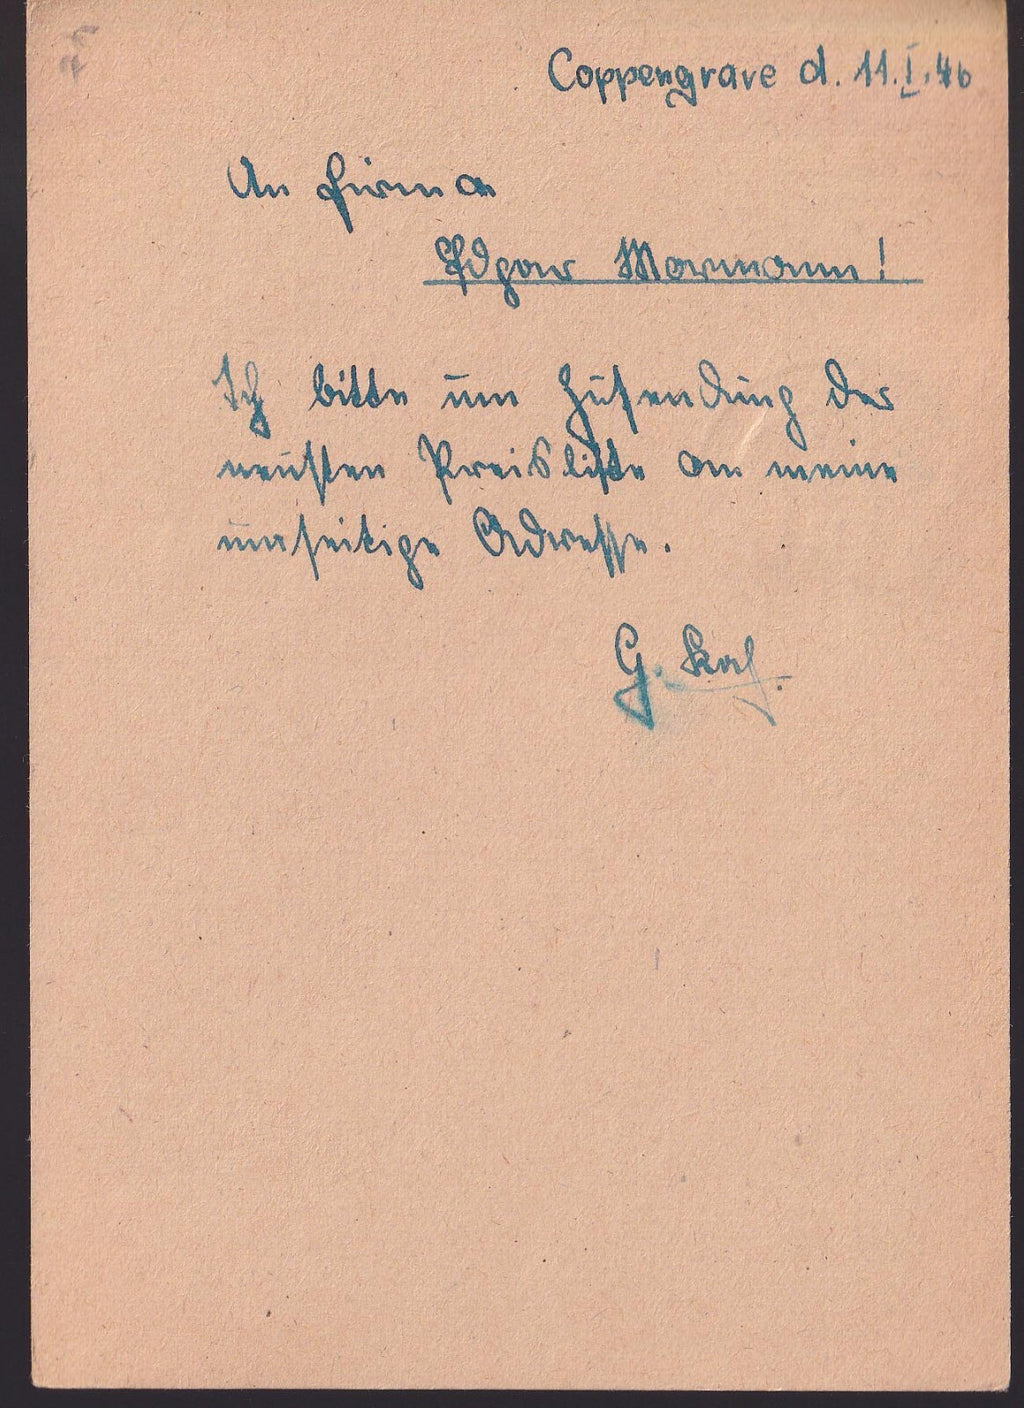 Coppengrave d. 11.I.46
An Firma
Edgar Mormann!
Ich bitte um Zusendung der
neusten Preisliste an meine
umseitige Adresse.
G.